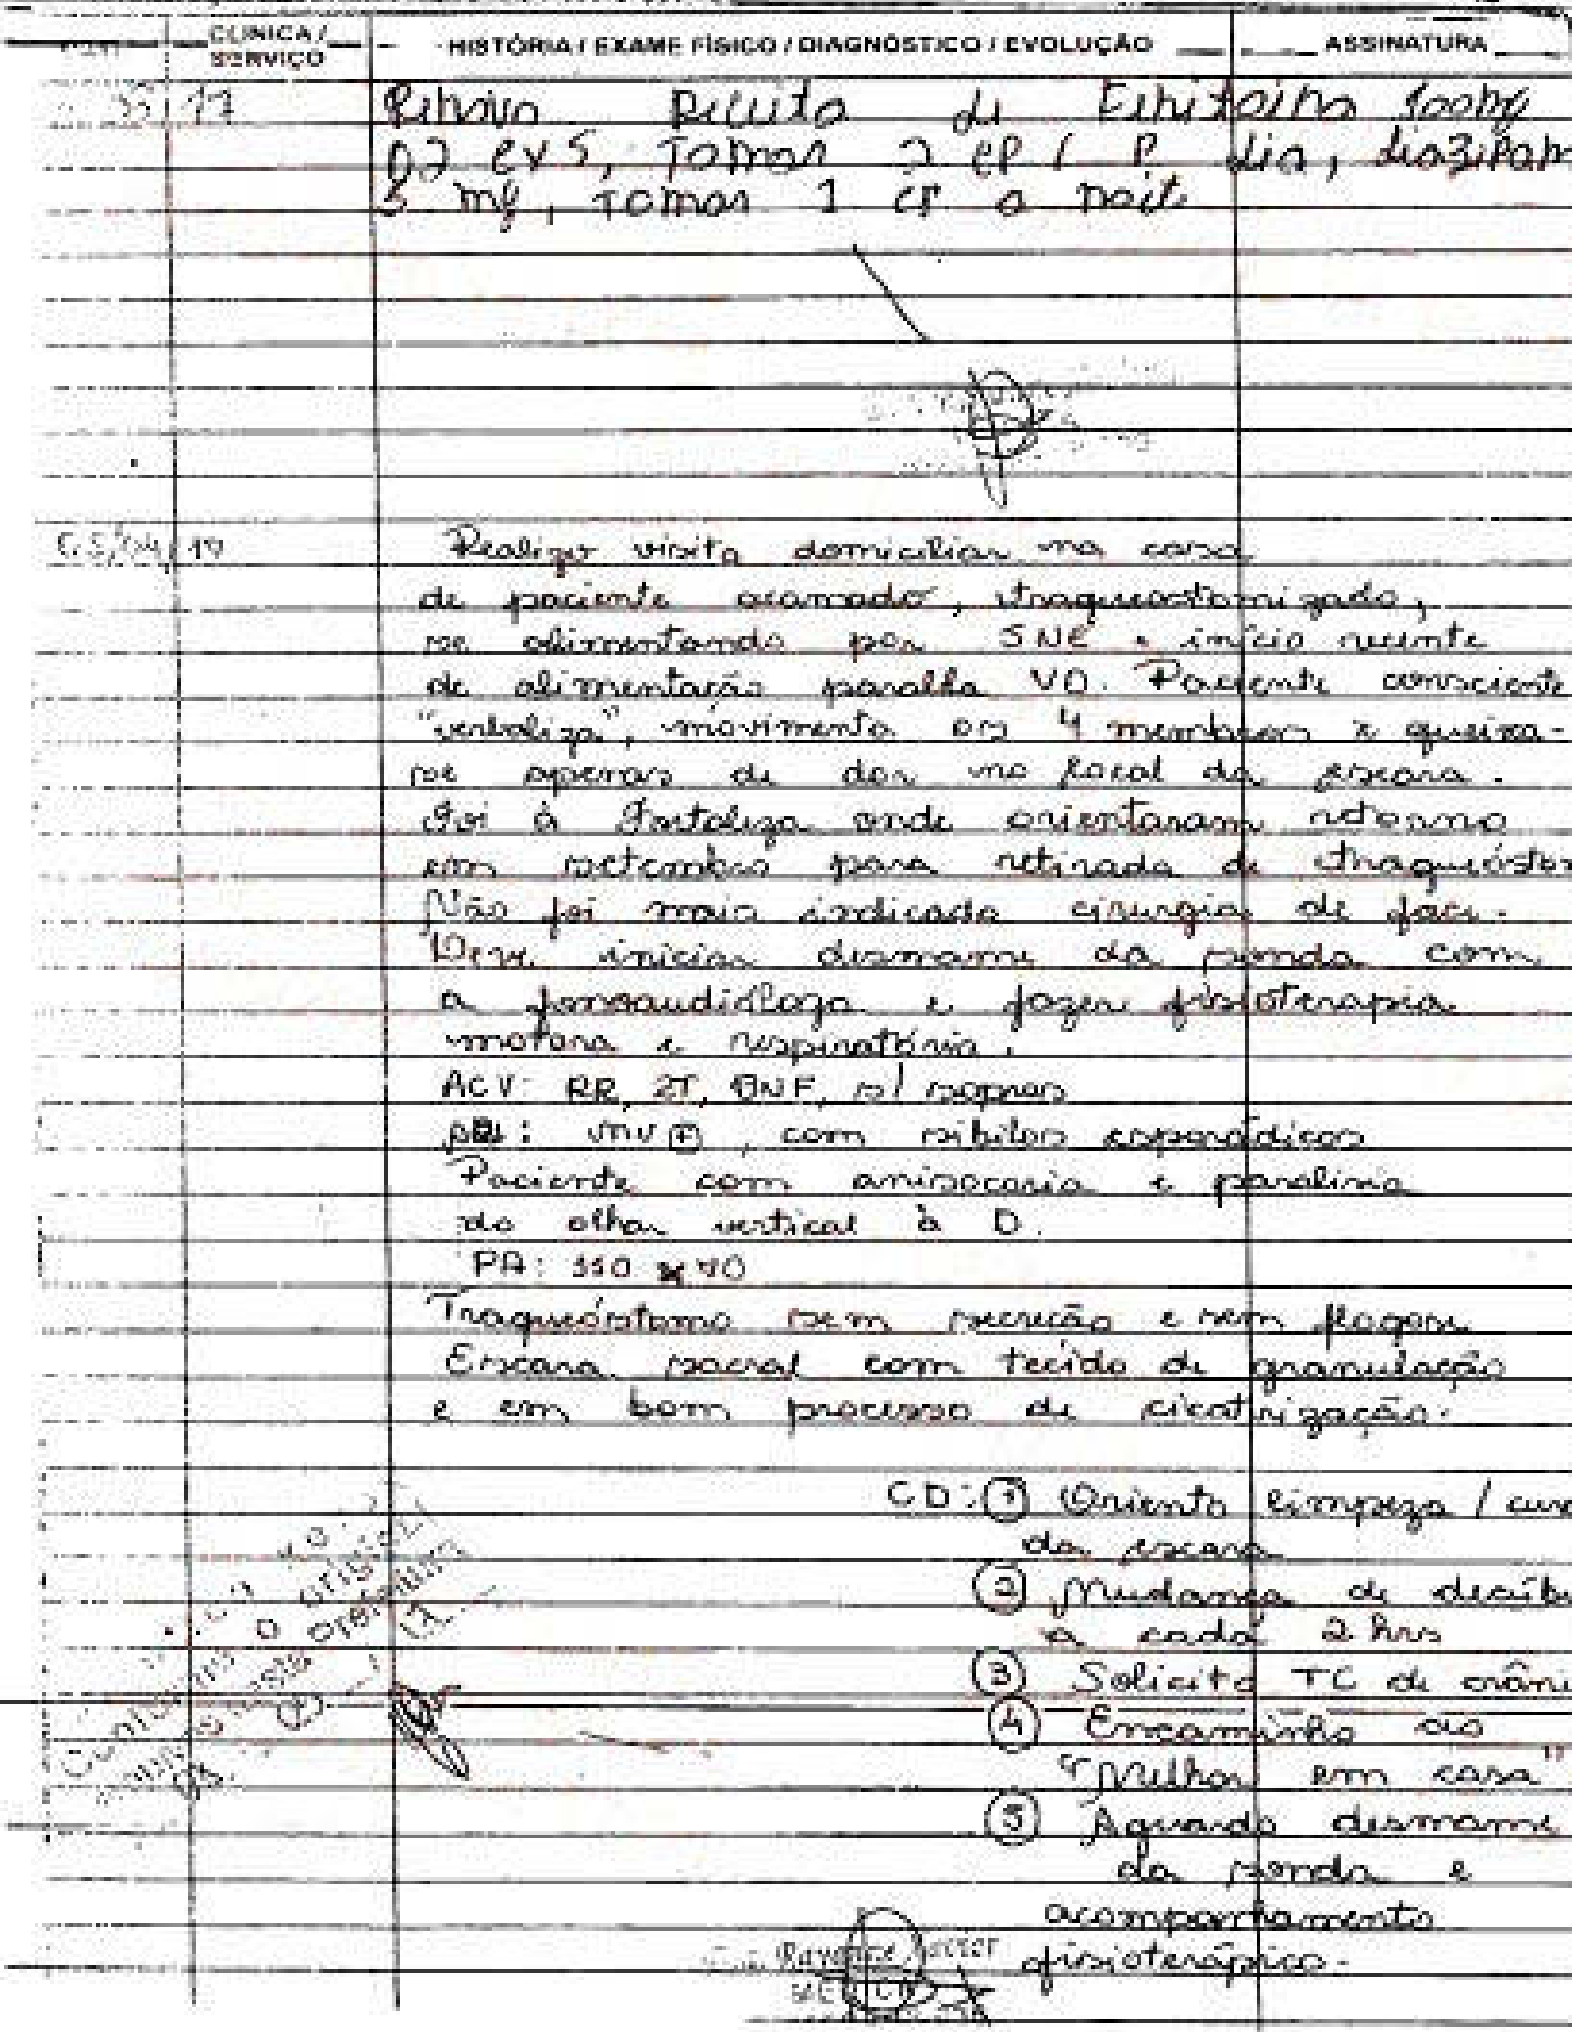 CLÍNICA / SERVIÇO
HISTÓRIA / EXAME FÍSICO / DIAGNÓSTICO / EVOLUÇÃO
ASSINATURA
17
Renovo Receita de Fenitoína 100mg
02 cxs, Tomar 2 cp / P. dia, diazipam
5 mg, Tomar 1 cp a noit
Realizo visita domiciliar na casa
de paciente acamado, traqueostomizado,
se alimentando por SNE e início recente
de alimentação paralela VO. Paciente consciente
"verbaliza", movimenta os 4 membros e queixa-
se apenas de dor no local da escara.
Foi à Fortaleza onde orientaram retorno
em setembro para retirada de traqueósto
Não foi mais indicada cirurgia de face.
Deve iniciar desmame da sonda com
a fonoaudióloga e fazer fisioterapia
motora e respiratória.
ACV: RR, 2T, BNF, s/ sopros
: MV ⊕, com sibilos esporádicos
Paciente com anisocoria e paralisia
do olhar vertical à D.
PA: 110 x
Traqueóstomo sem secreção e sem flogose
Escara sacral com tecido de granulação
e em bom processo de cicatrização.
CD: ① Oriento limpeza / cur
da escara
② Mudança de decúb
a cada 2 hrs
③ Solicito TC de crâni
④ Encaminho ao
"Melhor em casa"
⑤ Aguardo desmame
da sonda e
acompanhamento
fisioterápico.
o original